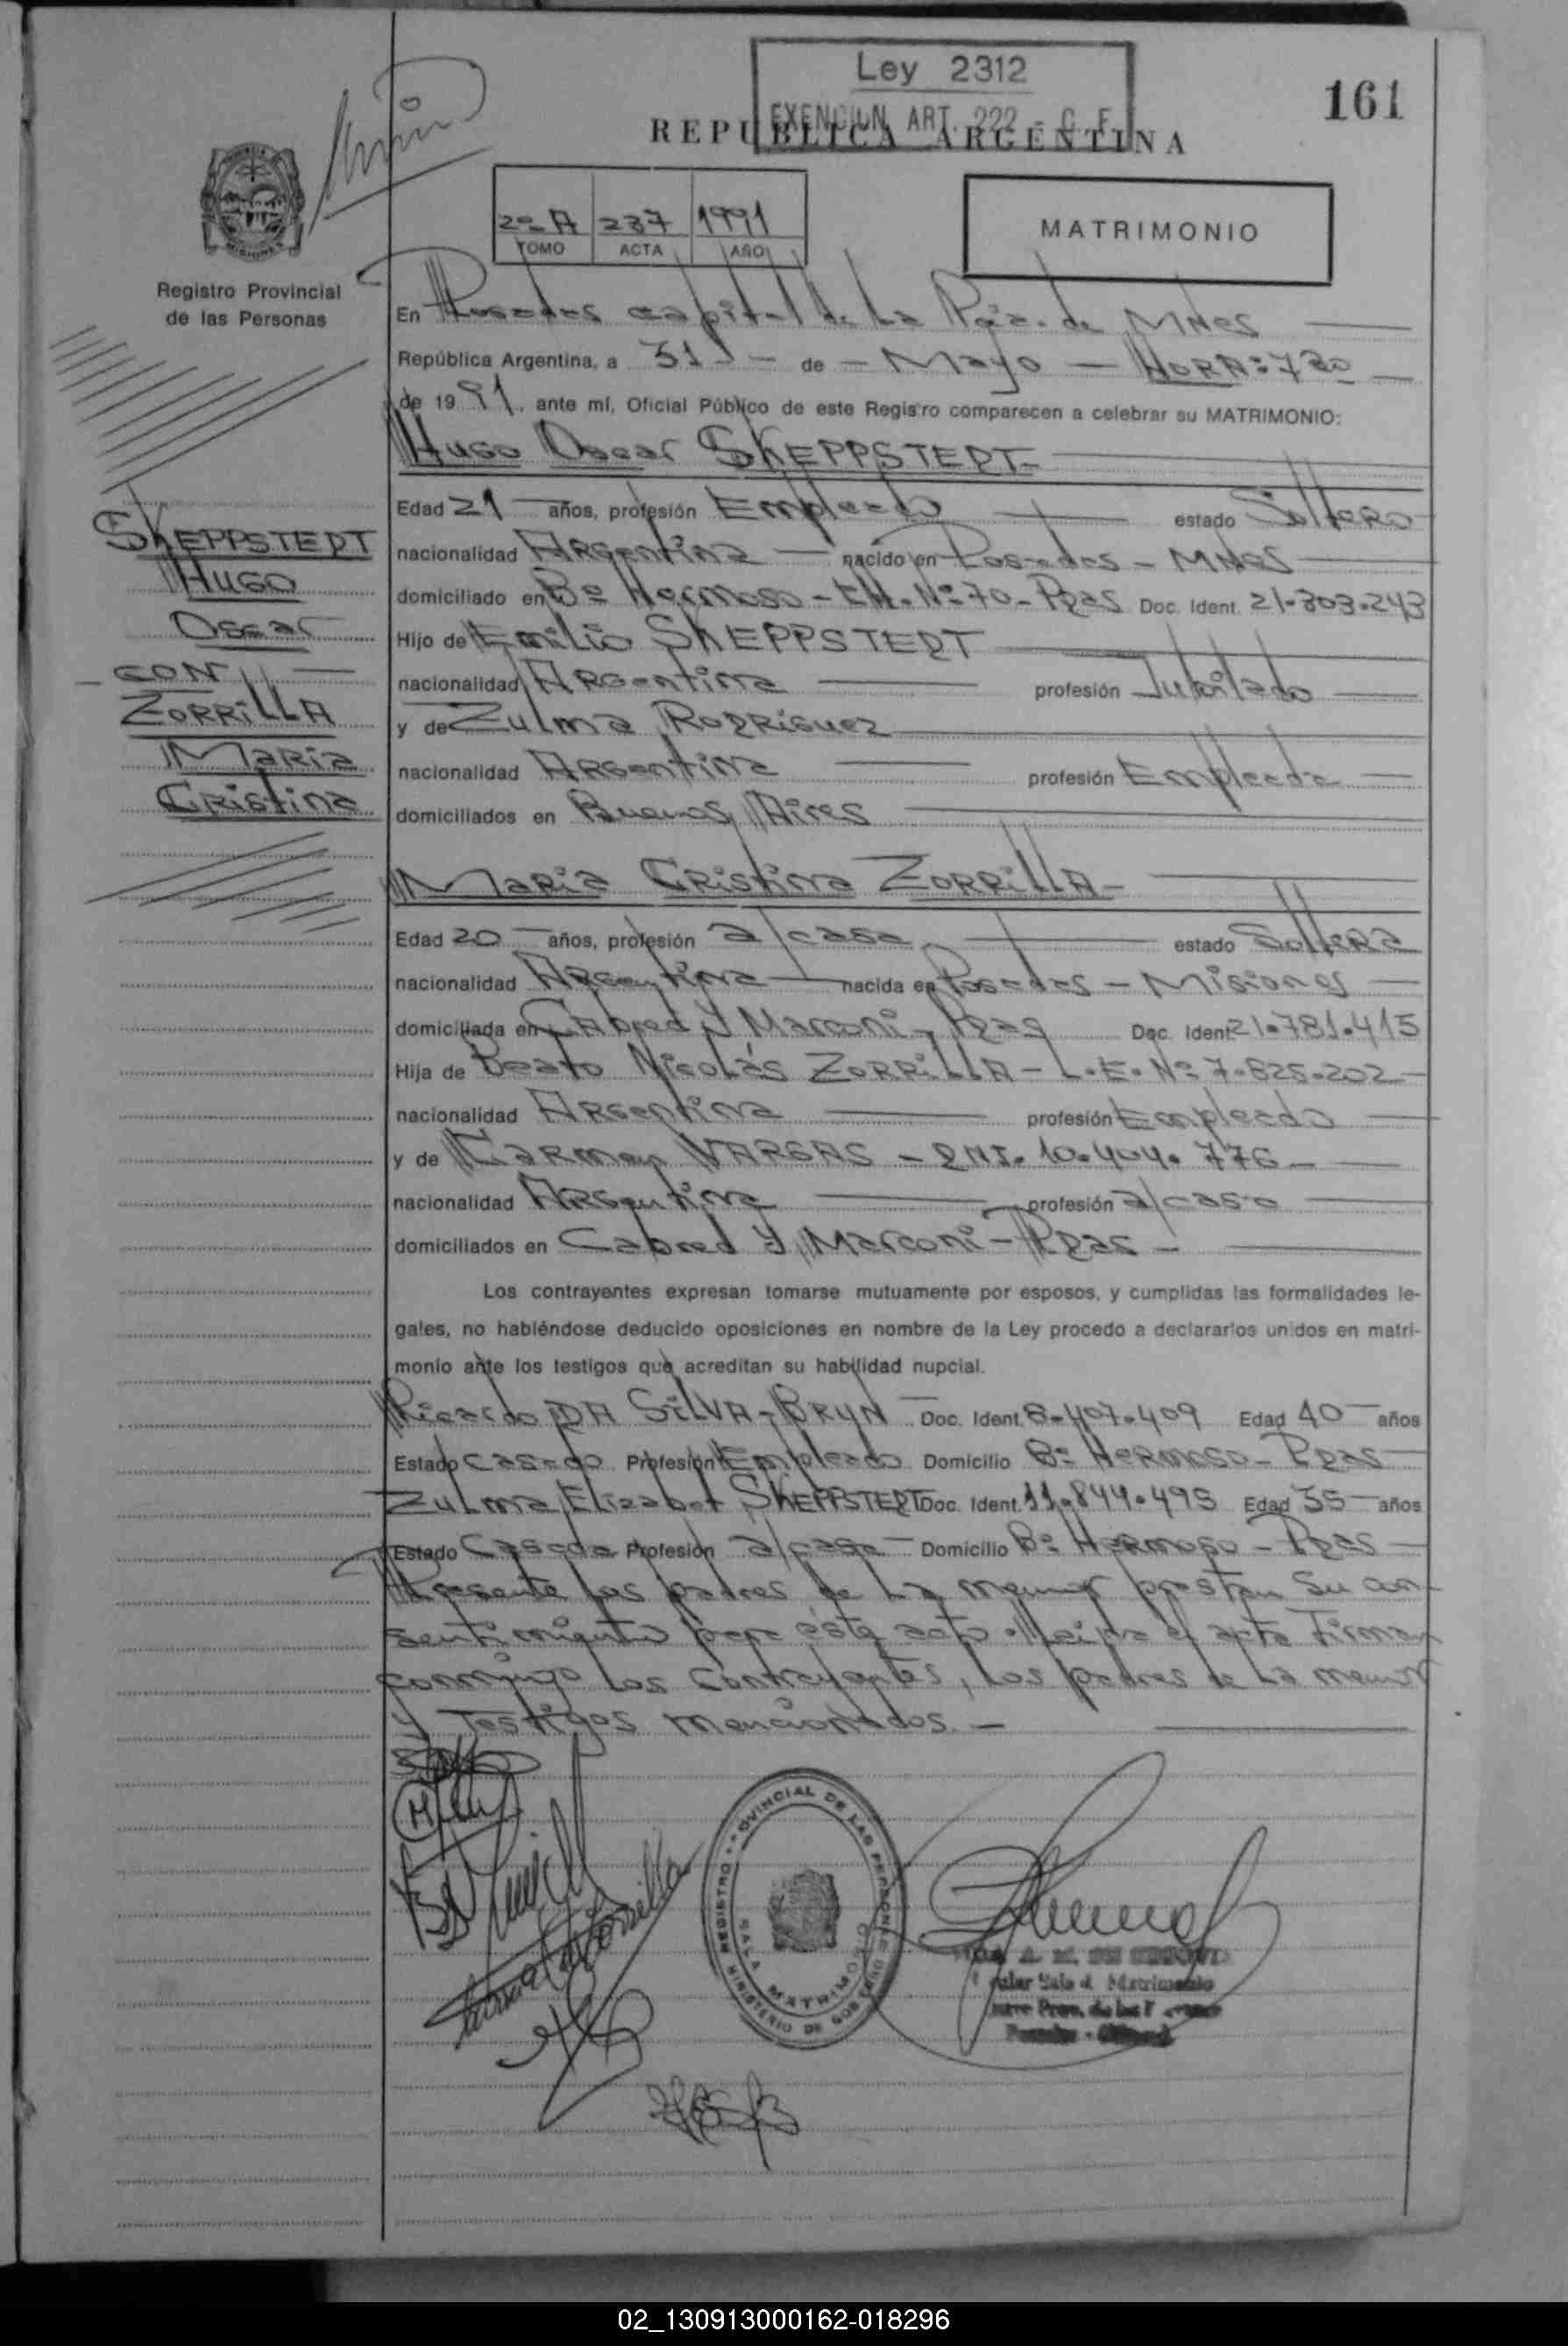 Ley 2312
EXENCION ART. 222 - C. F.
161
REPUBLICA ARGENTINA
2º A 237 1991
TOMO ACTA AÑO
MATRIMONIO
Registro Provincial
de las Personas
En Posadas capital de La Pcia. de MNes
República Argentina, a 31 - de - Mayo - HORA: 7 30
de 1991, ante mí, Oficial Público de este Registro comparecen a celebrar su MATRIMONIO:
Hugo Oscar SKEPPSTEDT-
Edad 21 años, profesión Empleado estado Soltero
nacionalidad Argentina nacido en Posadas - MNes
domiciliado en Bº Hermoso - CH. Nº 70 - Pdas Doc. Ident. 21.303.243
Hijo de Emilio SKEPPSTEDT
nacionalidad Argentina profesión Jubilado
y de Zulma Rodriguez
nacionalidad Argentina profesión Empleada
domiciliados en Buenos Aires
SKEPPSTEDT
HUGO
Oscar
- CON -
ZORRILLA
Maria
Cristina
Maria Cristina ZORRILLA -
Edad 20 años, profesión a/casa estado Soltera
nacionalidad Argentina nacida en Posadas - Misiones
domiciliada en Cabred y Marconi - Pdas Doc. Ident 21.781.415
Hija de Beato Nicolás ZORRILLA - L.E. Nº 7.825.202
nacionalidad Argentina profesión Empleado
y de Carmen VARGAS - DNI. 10.404.776 -
nacionalidad Argentina profesión a/casa
domiciliados en Cabred y Marconi - Pdas -
Los contrayentes expresan tomarse mutuamente por esposos, y cumplidas las formalidades le-
gales, no habiéndose deducido oposiciones en nombre de la Ley procedo a declararlos unidos en matri-
monio ante los testigos que acreditan su habilidad nupcial.
Ricardo DA SILVA-BRYN Doc. Ident. 8.407.409 Edad 40 años
Estado Casado Profesión Empleado Domicilio Bº Hermoso - Pdas
Zulma Elizabet SKEPPSTEDT Doc. Ident. 11.844.495 Edad 35 años
Estado Casada Profesión a/casa Domicilio Bº Hermoso - Pdas
Presente los padres de La menor prestan su con-
sentimiento para éste acto. Leida el acta Firman
conmigo los contrayentes, los padres de La menor
y Testigos mencionados. -
REGISTRO PROVINCIAL DE LAS PERSONAS
SALA MATRIMONIO
MINISTERIO DE GOBIERNO
Sala d. Matrimonio
02_130913000162-018296